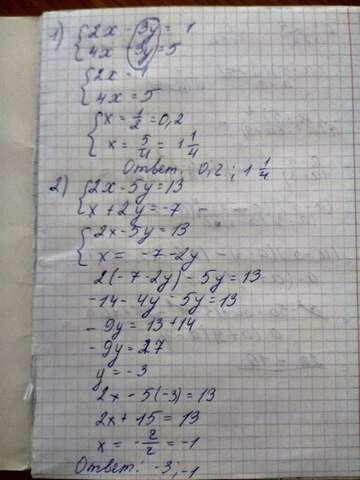 1) { 2x - 3y = 1
4x - 3y = 5
{ 2x = 1
4x = 5
{ x = 1/2 = 0,2
x = 5/4 = 1 1/4
Ответ: 0,2 ; 1 1/4
2) { 2x - 5y = 13
x + 2y = -7
{ 2x - 5y = 13
x = -7 - 2y
2(-7 - 2y) - 5y = 13
-14 - 4y - 5y = 13
-9y = 13 + 14
-9y = 27
y = -3
2x - 5(-3) = 13
2x + 15 = 13
x = -2/2 = -1
Ответ: -3; -1